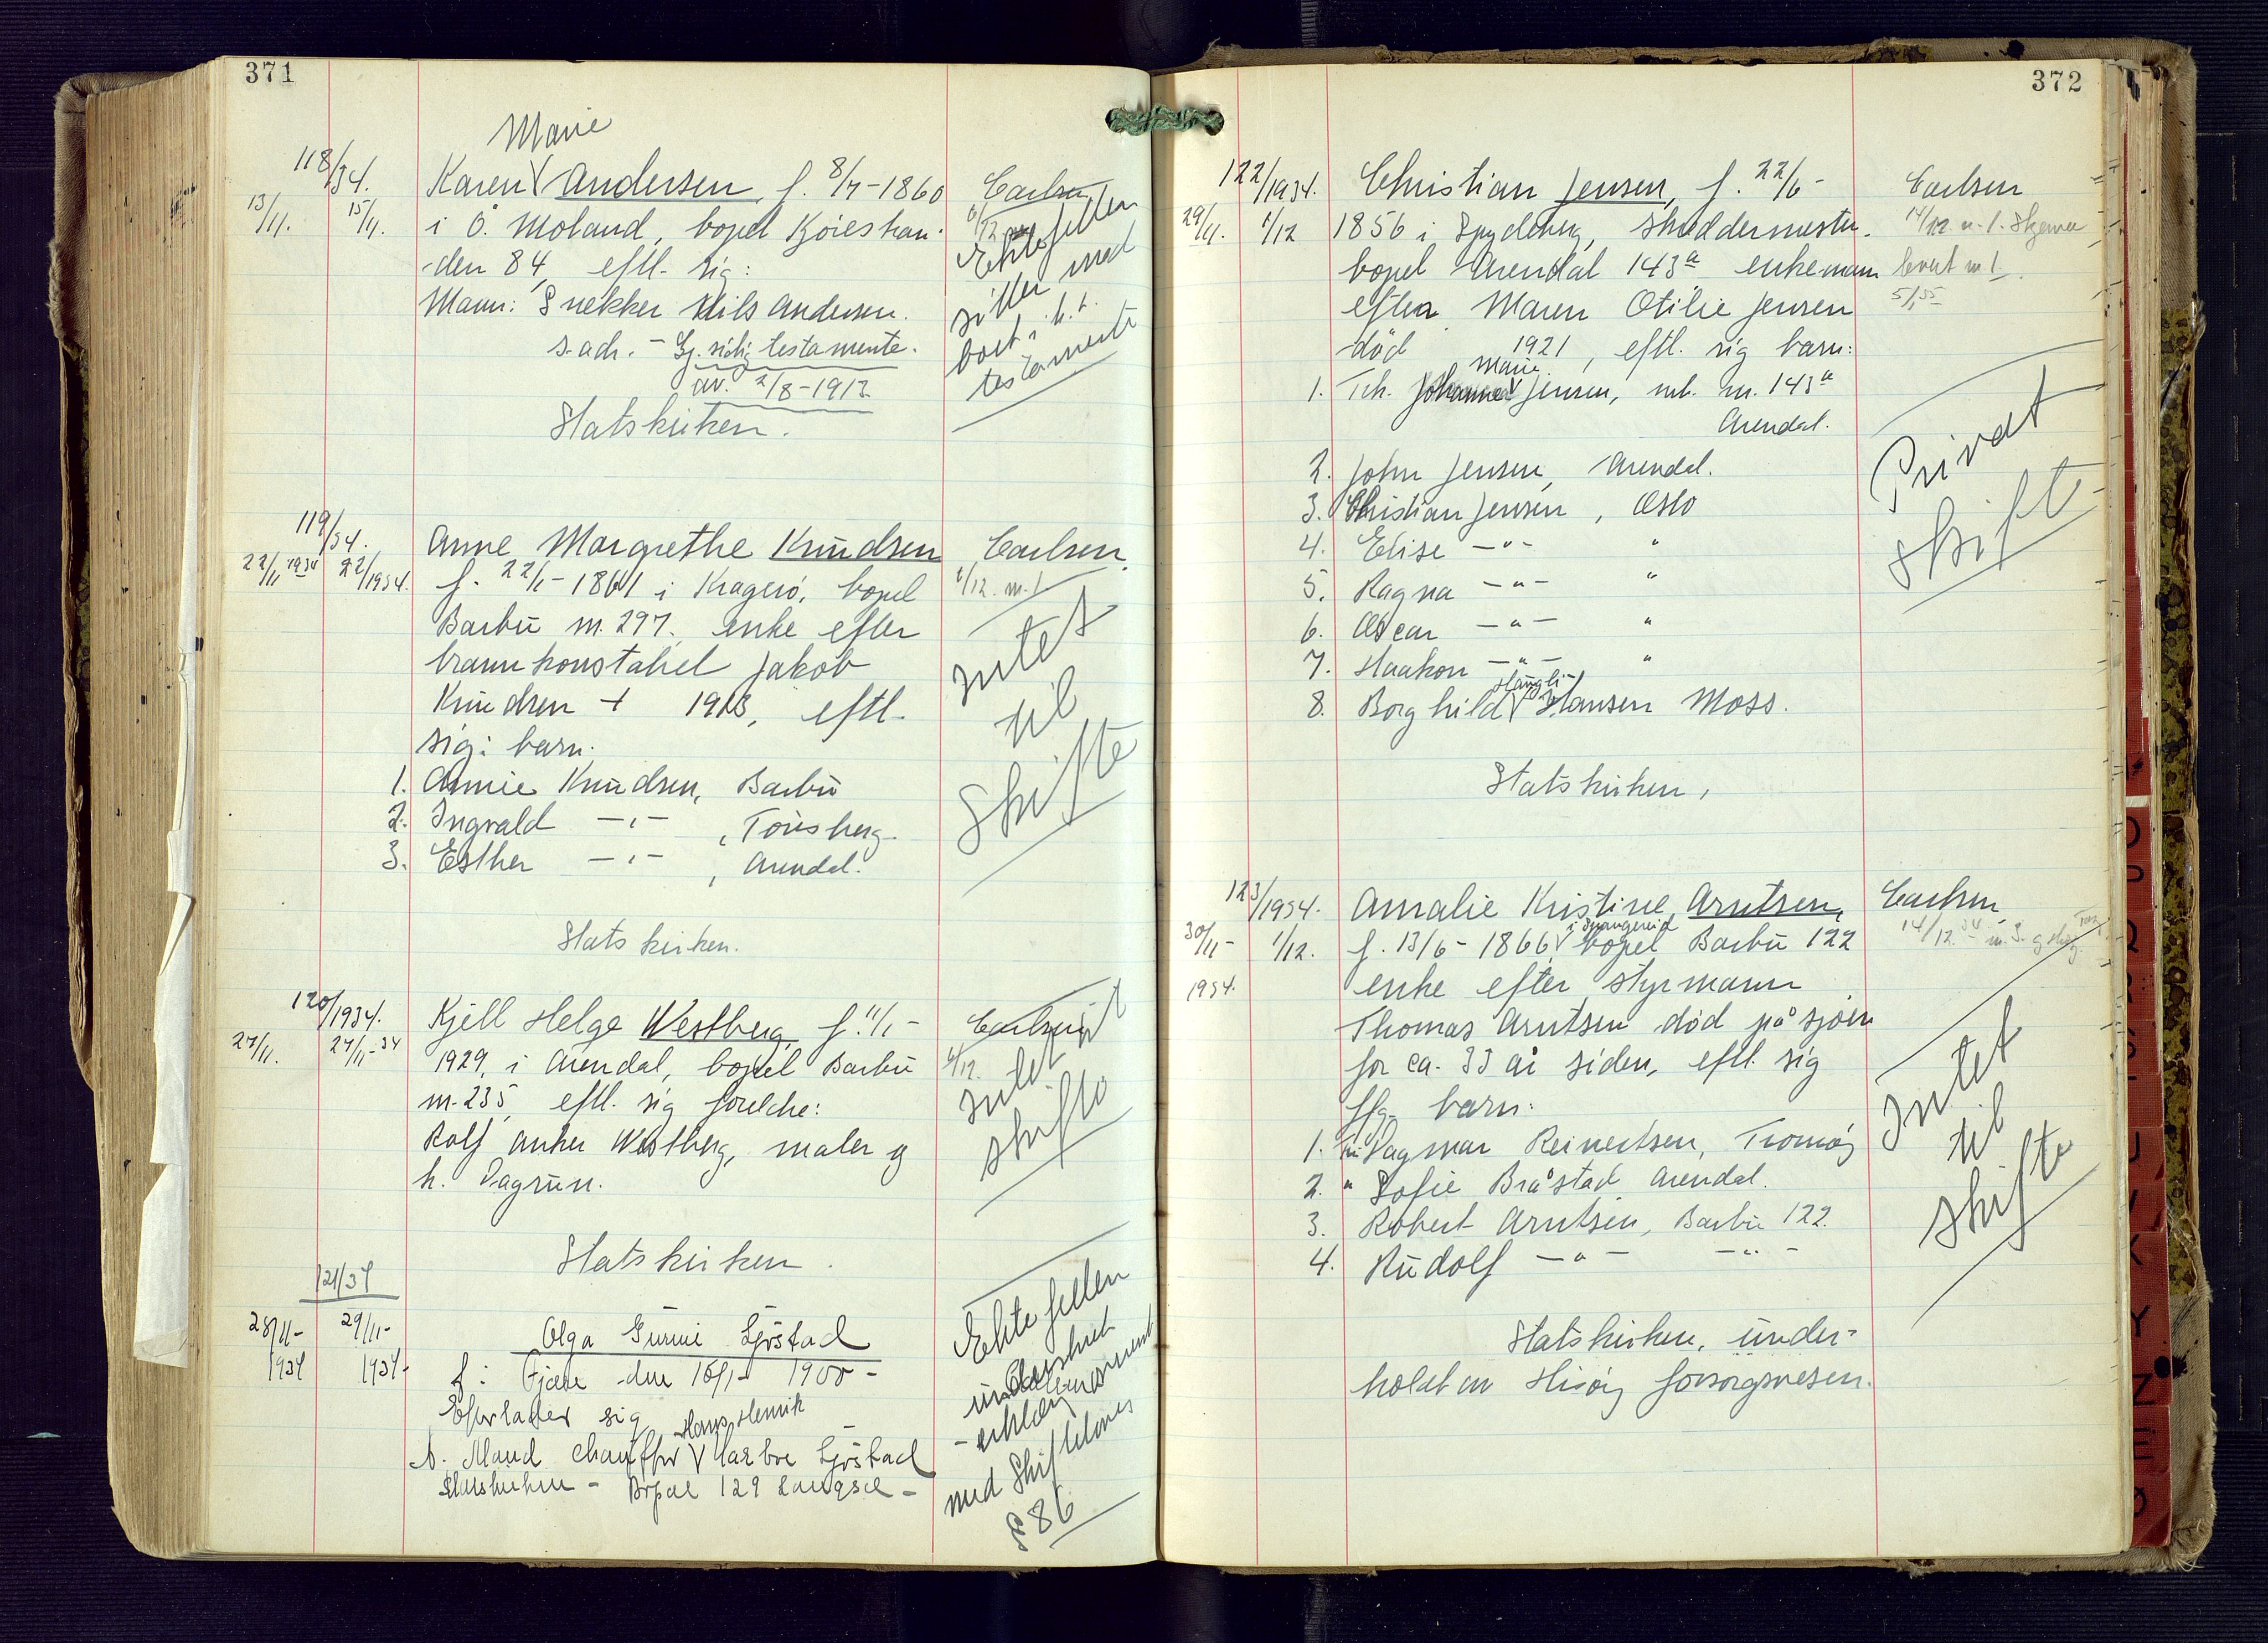 371
Marie
118/34.
Karen V Andersen, f. 8/7-1860
Carlsen
13/11. 15/11.
i Ø. Moland, bopel Kjøiestran-
6/12
den 84, eftl. sig:
Mann: Snekker Nils Andersen.
s. adr. - Gj. sidig testamente.
av. 2/8-1912.
Statskirken.
Ektefellen
sitter med
boet i h. t.
testamente
119/34.
Anne Margrethe Knudsen
Carlsen.
22/11 1934 22/1934.
f. 22/1-1861 i Kragerø, bopel
6/12. m.l.
Barbu nr. 297. enke efter
brannkonstabel Jakob
Knudsen + 1913, eftl.
sig: barn.
1. Annie Knudsen, Barbu
2. Ingvald -"- , Tønsberg.
3. Esther -"- , Arendal.
Intet
til
skifte
Statskirken.
120/1934.
Kjell Helge Westberg, f. 11/1-
Carlsen
27/11. 27/11-34
1929, i Arendal, bopel Barbu
6/12.
nr. 235, eftl. sig foreldre:
Rolf Anker Westberg, maler og
h. Dagrun.
Intet til
skifte
Statskirken.
121/34
28/11- 29/11-
1934 1934-
Olga Gunni Sjøstad
f: Fjære den 16/1- 1900-
Efterlater sig
Hans Henrik
A. Mand chauffør V Carboe Sjøstad
Statskirken - Bopæl 129 Langsæ -
Ektefellen
underskrevet
erklæring
med Skiftelovens
§ 86
372
122/1934.
Christian Jensen, f. 22/6-
Carlsen
29/11. 1/12
1856 i Spydeberg, skreddermester.
14/12 m.l. Skjema
bopel Arendal 143a enkemann
levert m.l.
5/1 35
efter Maren Otilie Jensen
død 1921, eftl. sig barn:
Marie
1. Frk. Johanne V Jensen, mb. nr. 143a
Arendal.
2. John Jensen, Arendal.
3. Christian Jensen, Oslo
4. Elise -"- "
5. Ragna -"- "
6. Oscar -"- "
7. Haakon -"- "
Haugli-
8. Borghild V Hansen Moss.
Privat
skifte
Statskirken,
123/1934.
Amalie Kristine Arntsen,
Carlsen
i Spangereid
30/11- 1/12.
f. 13/6-1866 V bopel Barbu 122
14/12 34
1934.
enke efter styrmann
Thomas Arntsen død på sjøen
for ca. 33 år siden, eftl. sig
ffg. barn:
1. Fru Dagmar Reinertsen, Tromøy
2. " Sofie Bråstad Arendal.
3. Robert Arntsen, Barbu 122.
4. Rudolf -"- -"-
Intet
til
skifte
Statskirken, under-
holdt av Hisøy forsorgsvesen.